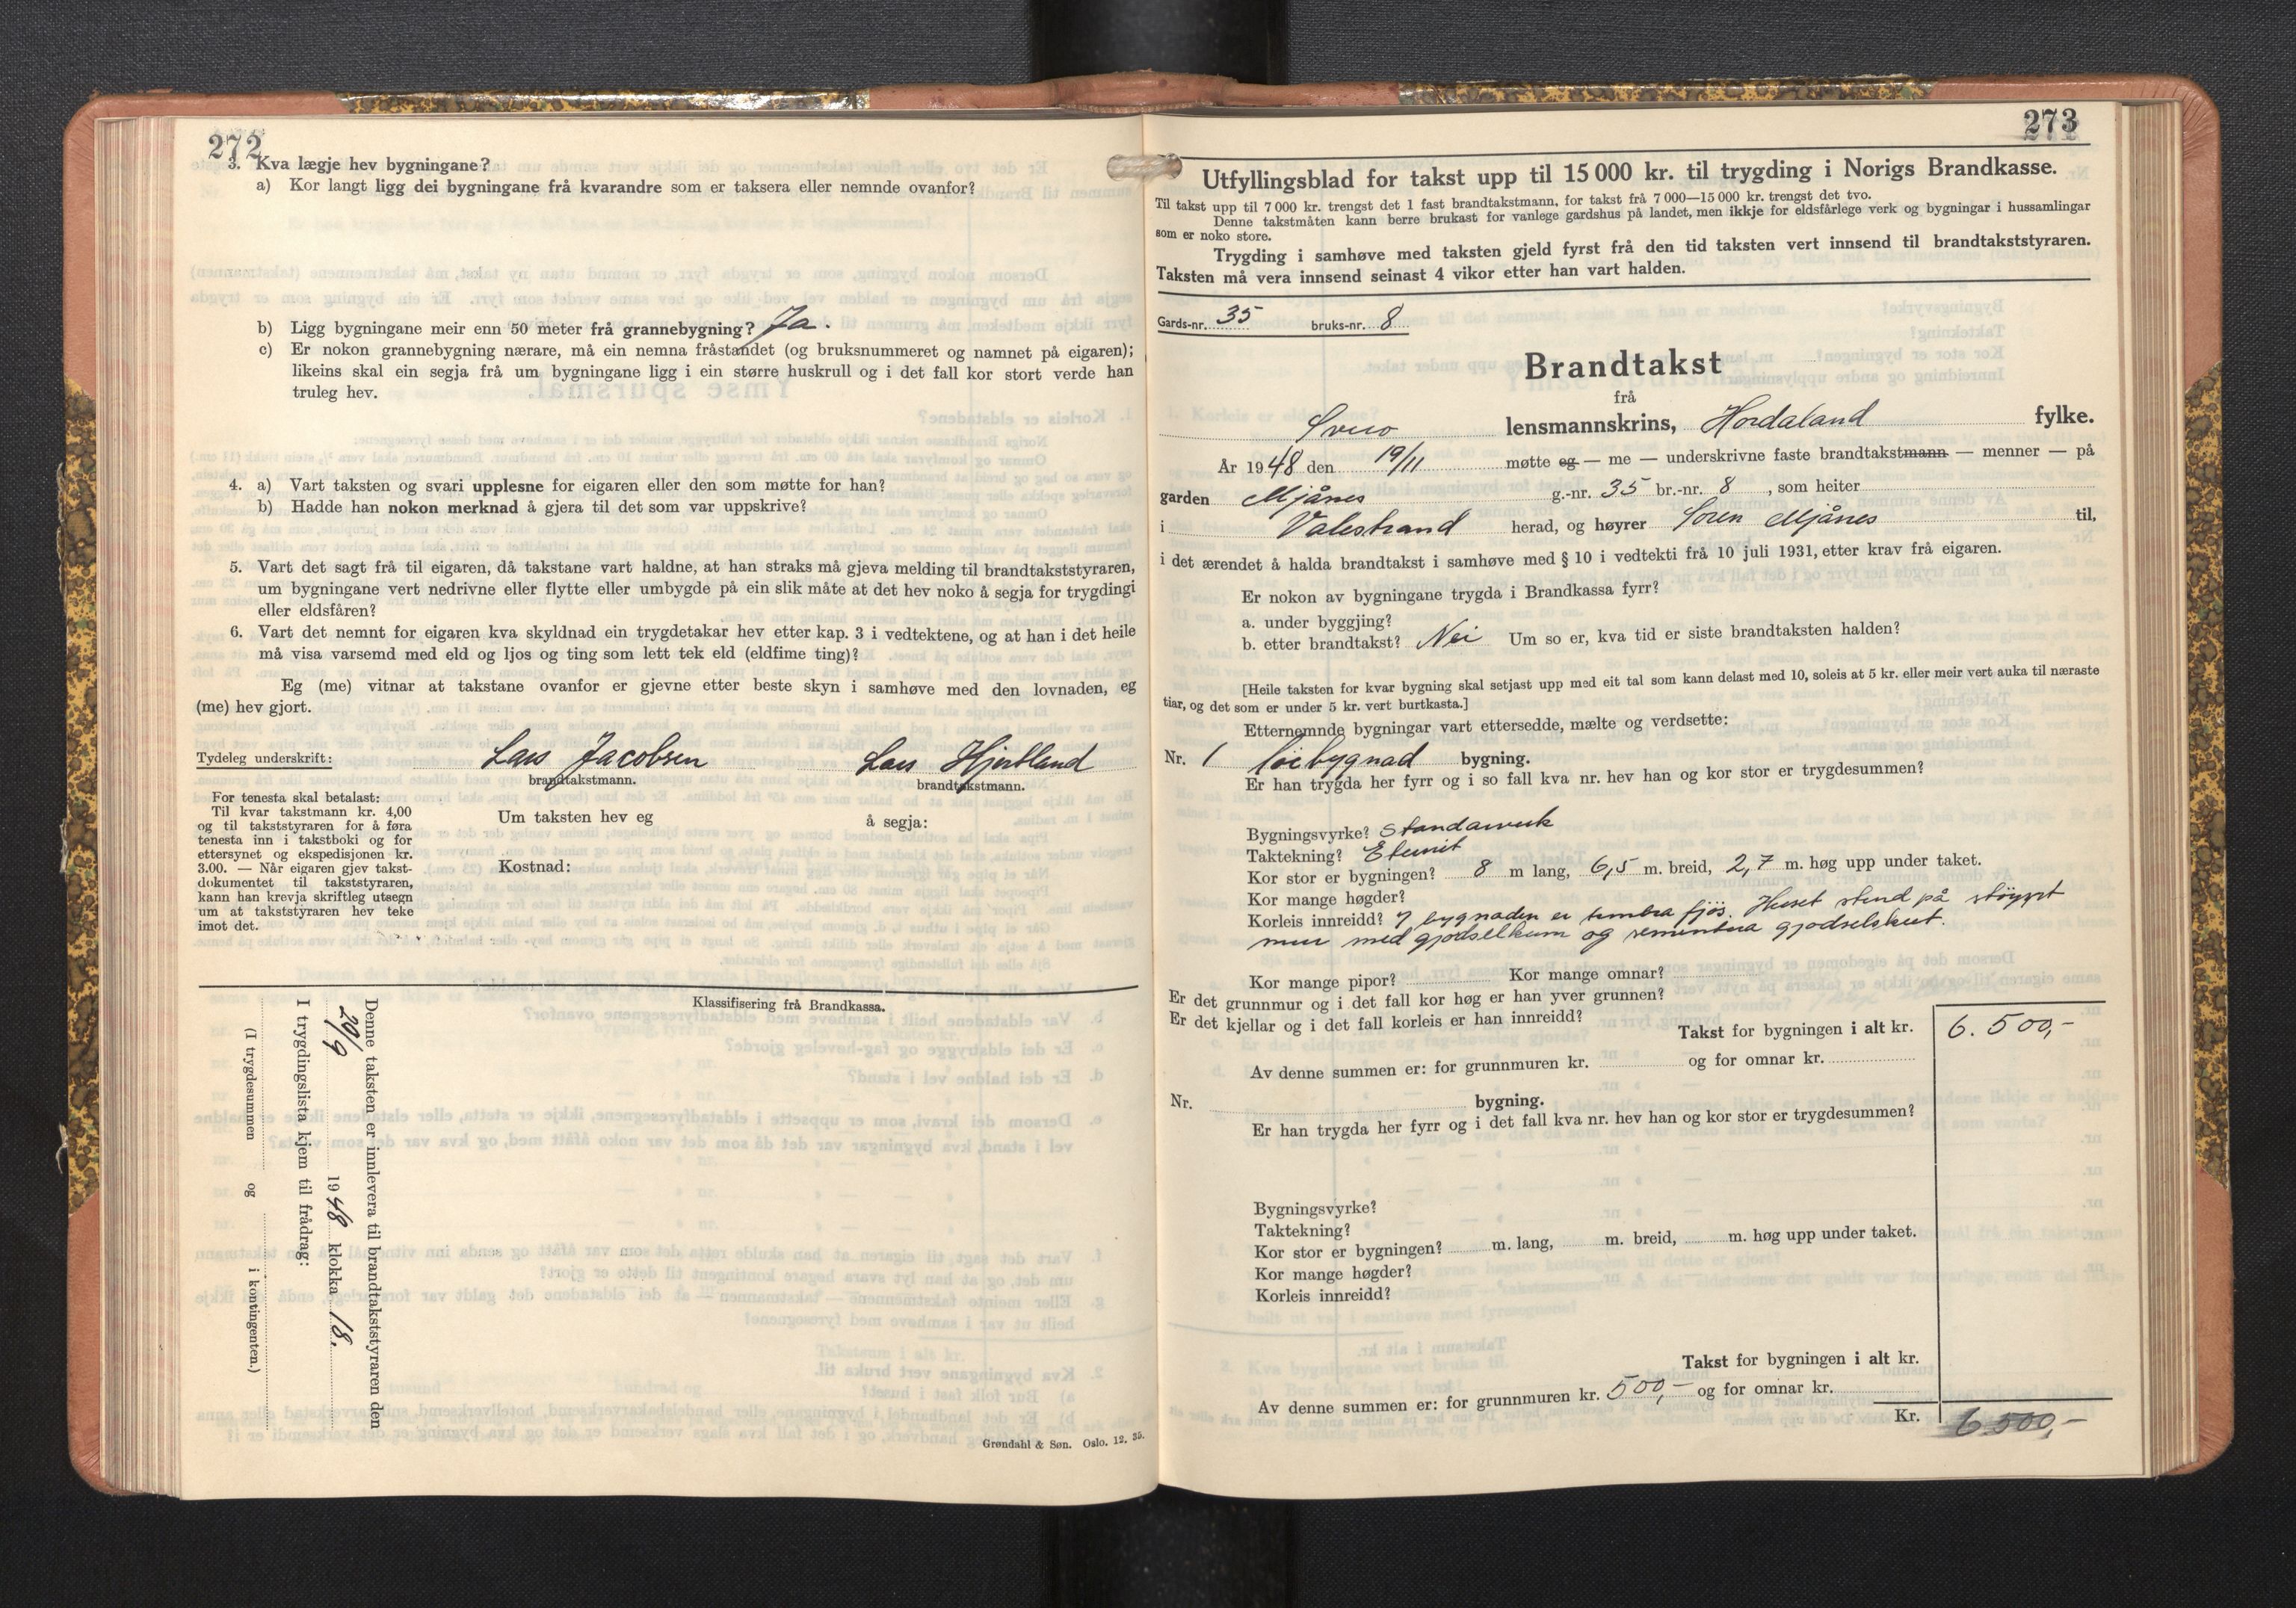 272
3. Kva lægje hev bygningane?
a) Kor langt ligg dei bygningane frå kvarandre som er taksera eller nemnde ovanfor?
b) Ligg bygningane meir enn 50 meter frå grannebygning? Ja.
c) Er nokon grannebygning nærare, må ein nemna fråstandet (og bruksnummeret og namnet på eigaren);
likeins skal ein segja frå um bygningane ligg i ein større huskrull og i det fall kor stort verde han
truleg hev.
4. a) Vart taksten og svari upplesne for eigaren eller den som møtte for han?
b) Hadde han nokon merknad å gjera til det som var uppskrive?
5. Vart det sagt frå til eigaren, då takstane vart haldne, at han straks må gjeva melding til brandtakststyraren,
um bygningane vert nedrivne eller flytte eller umbygde på ein slik måte at det hev noko å segja for trygdingi
eller eldsfåren?
6. Vart det nemnt for eigaren kva skyldnad ein trygdetakar hev etter kap. 3 i vedtektene, og at han i det heile
må visa varsemd med eld og ljos og ting som lett tek eld (eldfime ting)?
Eg (me) vitnar at takstane ovanfor er gjevne etter beste skyn i samhøve med den lovnaden, eg
(me) hev gjort.
Tydeleg underskrift: Lars Jacobsen Lars Hjertland
brandtakstmann. brandtakstmann.
For tenesta skal betalast:
Til kvar takstmann kr. 4,00
og til takststyraren for å føra
tenesta inn i takstboki og for
ettersynet og ekspedisjonen kr.
3.00. — Når eigaren gjev takst-
dokumentet til takststyraren,
kann han krevja skriftleg utsegn
um at takststyraren hev teke
imot det.
Um taksten hev eg å segja:
Kostnad:
Klassifisering frå Brandkassa.
Denne taksten er innlevera til brandtakststyraren den
20/9 1948 klokka 18.
I trygdingslista kjem til frådrag:
(I trygdesummen og i kontingenten.)
Grøndahl & Søn. Oslo. 12. 35.
273
Utfyllingsblad for takst upp til 15 000 kr. til trygding i Norigs Brandkasse.
Til takst upp til 7 000 kr. trengst det 1 fast brandtakstmann, for takst frå 7 000—15 000 kr. trengst det tvo.
Denne takstmåten kann berre brukast for vanlege gardshus på landet, men ikkje for eldsfårlege verk og bygningar i hussamlingar
som er noko store.
Trygding i samhøve med taksten gjeld fyrst frå den tid taksten vert innsend til brandtakststyraren.
Taksten må vera innsend seinast 4 vikor etter han vart halden.
Gards-nr. 35 bruks-nr. 8
Brandtakst
frå
Sveio lensmannskrins, Hordaland fylke.
År 1948 den 19/11 møtte eg — me — underskrivne faste brandtakstmann — menner — på
garden Mjånes g.-nr. 35 br.-nr. 8, som heiter
i Valestrand herad, og høyrer Søren Mjånes til,
i det ærendet å halda brandtakst i samhøve med § 10 i vedtekti frå 10 juli 1931, etter krav frå eigaren.
Er nokon av bygningane trygda i Brandkassa fyrr?
a. under byggjing?
b. etter brandtakst? Nei Um so er, kva tid er siste brandtaksten halden?
[Heile taksten for kvar bygning skal setjast upp med eit tal som kann delast med 10, soleis at 5 kr. eller meir vert auka til næraste
tiar, og det som er under 5 kr. vert burtkasta.]
Etternemnde bygningar vart ettersedde, mælte og verdsette:
Nr. 1 løebygnad bygning.
Er han trygda her fyrr og i so fall kva nr. hev han og kor stor er trygdesummen?
Bygningsvyrke?
Taktekning? Eternit
Kor stor er bygningen? 8 m lang, 6,5 m. breid, 2,7 m. høg upp under taket.
Kor mange høgder?
Korleis innreidd? I bygnaden er tømbra fjøs. Huset stend på støypt
mur med gjødselkum og sementera gjødselskut.
Kor mange pipor? Kor mange omnar?
Er det grunnmur og i det fall kor høg er han yver grunnen?
Er det kjellar og i det fall korleis er han innreidd?
Takst for bygningen i alt kr. 6.500,-
Av denne summen er: for grunnmuren kr. og for omnar kr.
Nr. bygning.
Er han trygda her fyrr og i det fall kva nr. hev han og kor stor er trygdesummen?
Bygningsvyrke?
Taktekning?
Kor stor er bygningen? m. lang, m. breid, m. høg upp under taket.
Kor mange høgder?
Korleis innreidd?
Takst for bygningen i alt kr.
Av denne summen er: for grunnmuren kr. 500,- og for omnar kr.
Kr. 6500,-